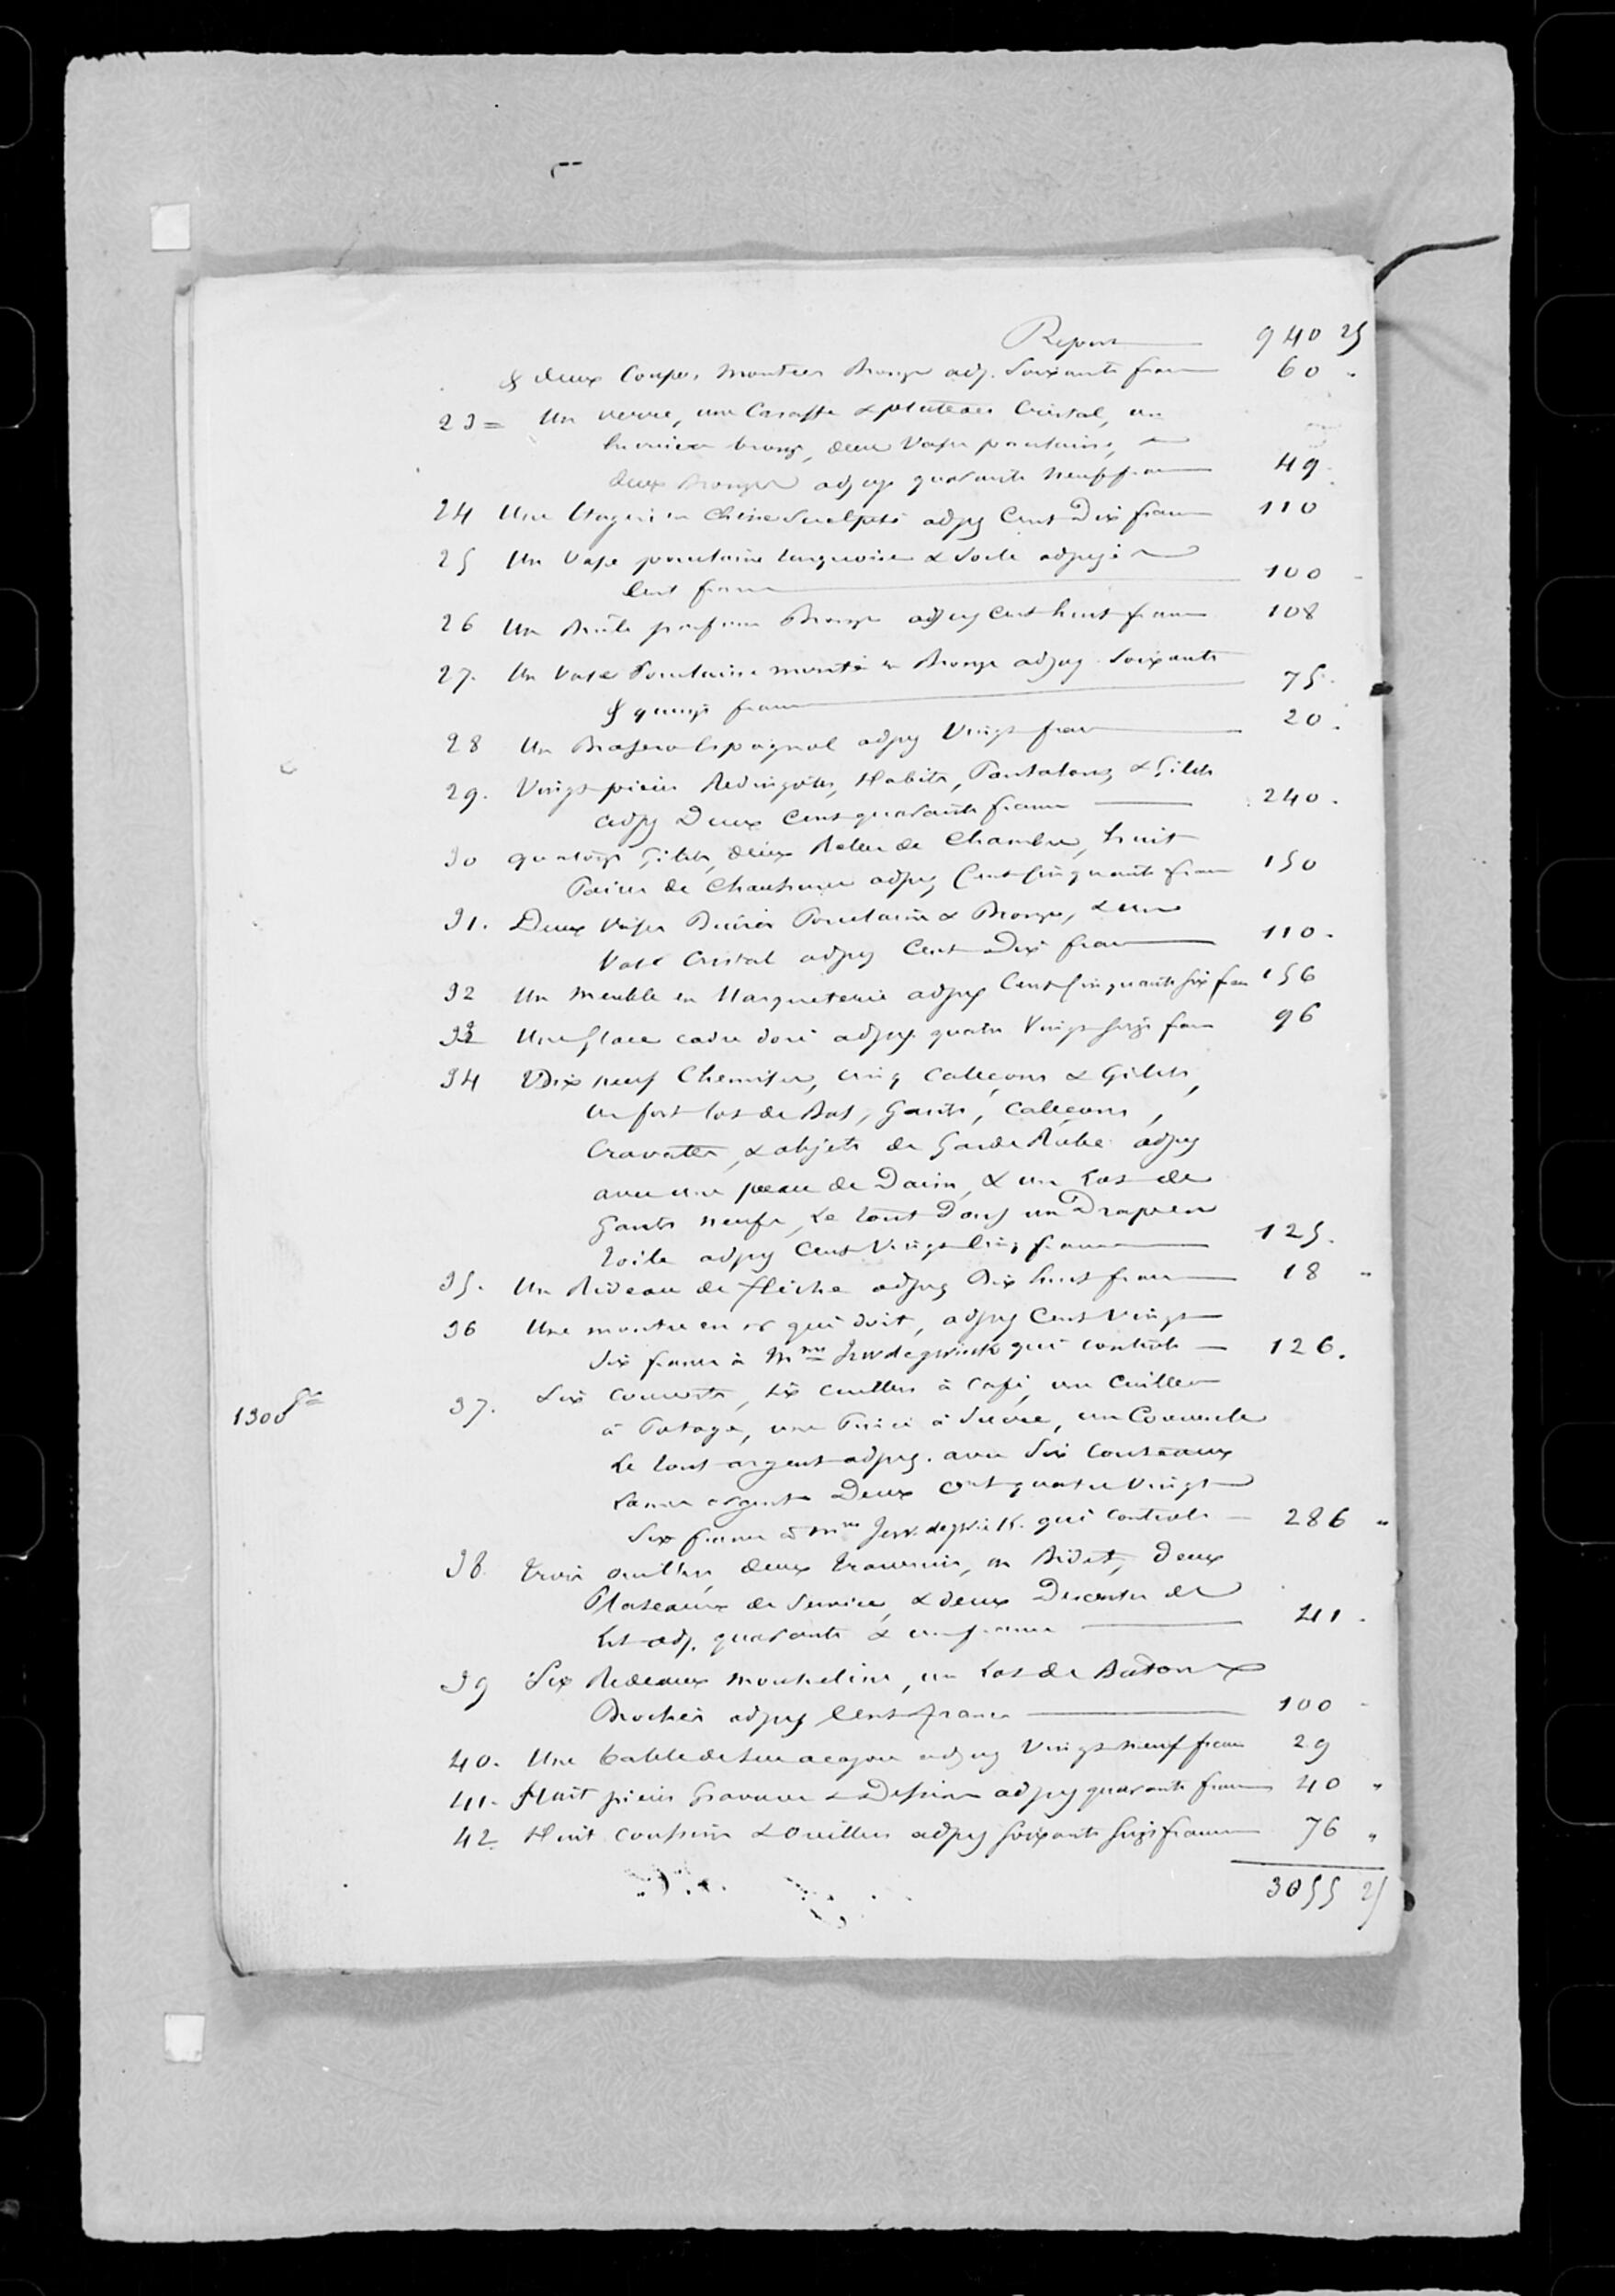 Report 940 25
& deux Coupes montées Bronze adj. Soixante francs 60 "
23 = Un verre, une Caraffe & plateau Cristal, un
bronze, deux Vases porcelaine,
deux Bronzes adjug quarante neuf francs 49.
24 Une Etagère en Chêne Sculpté adjug Cent Dix francs 110
25 Un Vase porcelaine turquoise & Socle adjugé
Cent francs 100 -
26 Un Brûle parfum Bronze adjug Cent huit francs 108
27. Un Vase Porcelaine monté en Bronze adjug. Soixante
& quinze francs 75.
28 Un Brasero Espagnol adjug Vingt francs 20.
29. Vingt pièces Redingotes, Habits, Pantalons, & Gilets
adjug Deux Cent quarante francs 240.
30 quatorze Gilets, deux Robes de Chambre, huit
Paires de Chaussures adjug Cent Cinquante francs 150
31. Deux Vases Buires Porcelaine & Bronze, & un
Vase Cristal adjug Cent Dix francs 110.
32 Un Meuble en Marqueterie adjug Cent Cinquante Six francs 156
33 Une glace cadre doré adjug. quatre Vingt Seize francs 96
34 Dix neuf Chemises, cinq Caleçons & Gilets,
un fort lot de Bas, Gants, Caleçons,
Cravattes, & objets de Garde Robe adjug
avec une peau de Daim, & un Lot de
Gants neufs, Le tout Dans un Drap en
toile adjug Cent Vingt Cinq francs 125.
35. Un Rideau de flèche adjug Dix huit francs 18 "
36 Une montre en or qui doit, adjug Cent Vingt
Six francs à Mme qui contrôle 126.
1300 gr 37. Six Couverts, Six cuillers à Café, une Cuiller
à Potage, une Pince à Sucre, un Couvercle
Le tout argent adjug. avec Six Couteaux
Lames argent Deux Cent quatre Vingt
Six francs à Mme qui contrôle 286 "
38. Trois oreillers, deux traversins, un Bidet, Deux
Plateaux de Service, & deux Descentes de
Lit adj. quarante & un francs 41.
39 Six Rideaux mousseline, un Lot de
adjug Cent francs 100 -
40. Une table de jeu acajou adjug Vingt neuf francs 29
41. Huit pièces Gravures & Dessins adjug quarante francs 40 "
42 Huit coussins & Oreillers adjug Soixante Seize francs 76 "
3055 25